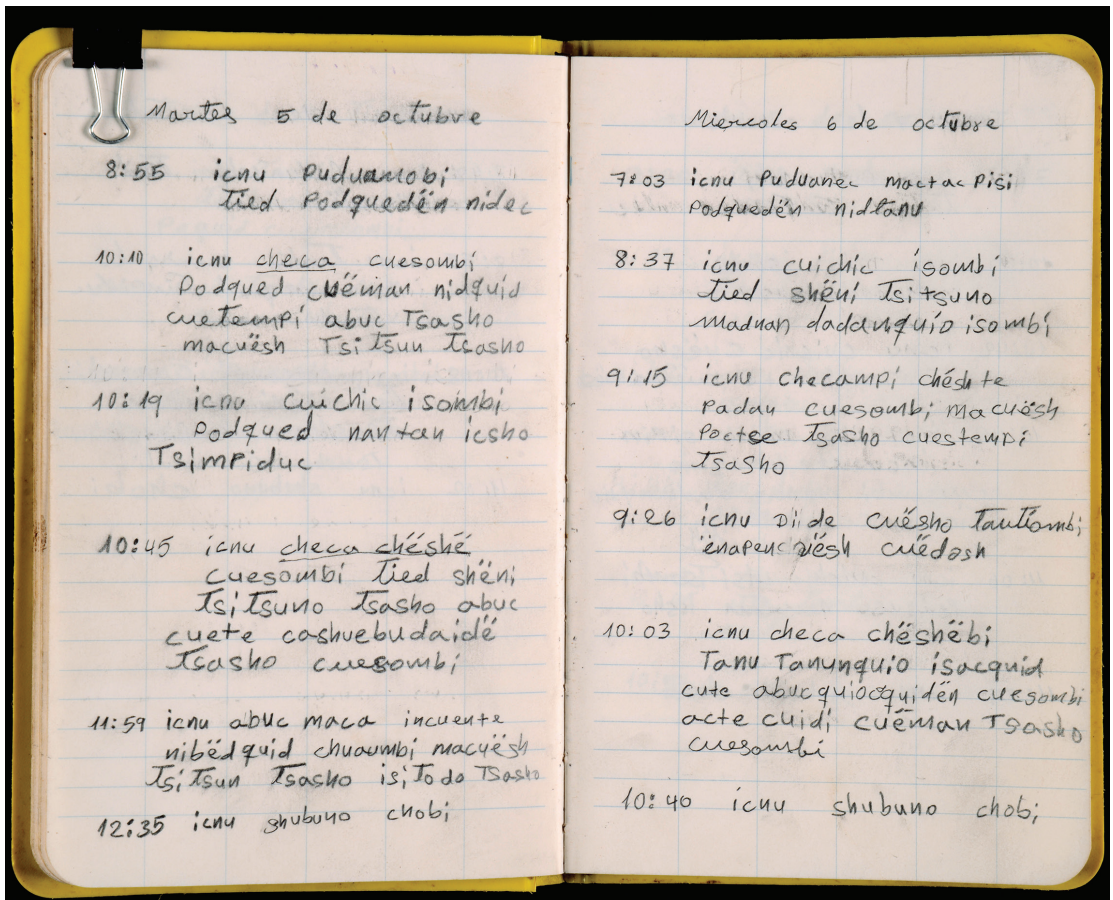 Martes 5 de octubre
8:55 icnu Puduanobi
tied Podquedën nidec
10:10 icnu checa cuesombi
Podqued cuëman nidquid
cuetempi abuc Tsasho
macuësh Tsitsun Tsasho
10:19 icnu cuichic isombi
Podqued nantan icsho
Tsimpiduc
10:45 icnu checa chëshë
cuesombi tied shëni
Tsitsuno Tsasho abuc
cuete cashuebudaidë
Tsasho cuesombi
11:59 icnu abuc maca incuente
nibëdquid chuaumbi macuësh
Tsitsun Tsasho isitodo Tsasho
12:35 icnu shubuno chobi
Miercoles 6 de octubre
7:03 icnu Puduanec mactac Pisi
Podquedën nidtanu
8:37 icnu cuichic isombi
tied shëni Tsitsuno
madnan dadanquio isombi
9:15 icnu checampi chështe
Padan cuesombi macuësh
Poctse Tsasho cuestempi
Tsasho
9:26 icnu Di de cuësho Tautiombi
ënapen cuësh cuëdash
10:03 icnu checa chëshëbi
Tanu Tanunquio isacquid
cute abucquiocquidën cuesombi
acte cuidi cuëman Tsasho
cuesombi
10:40 icnu shubuno chobi